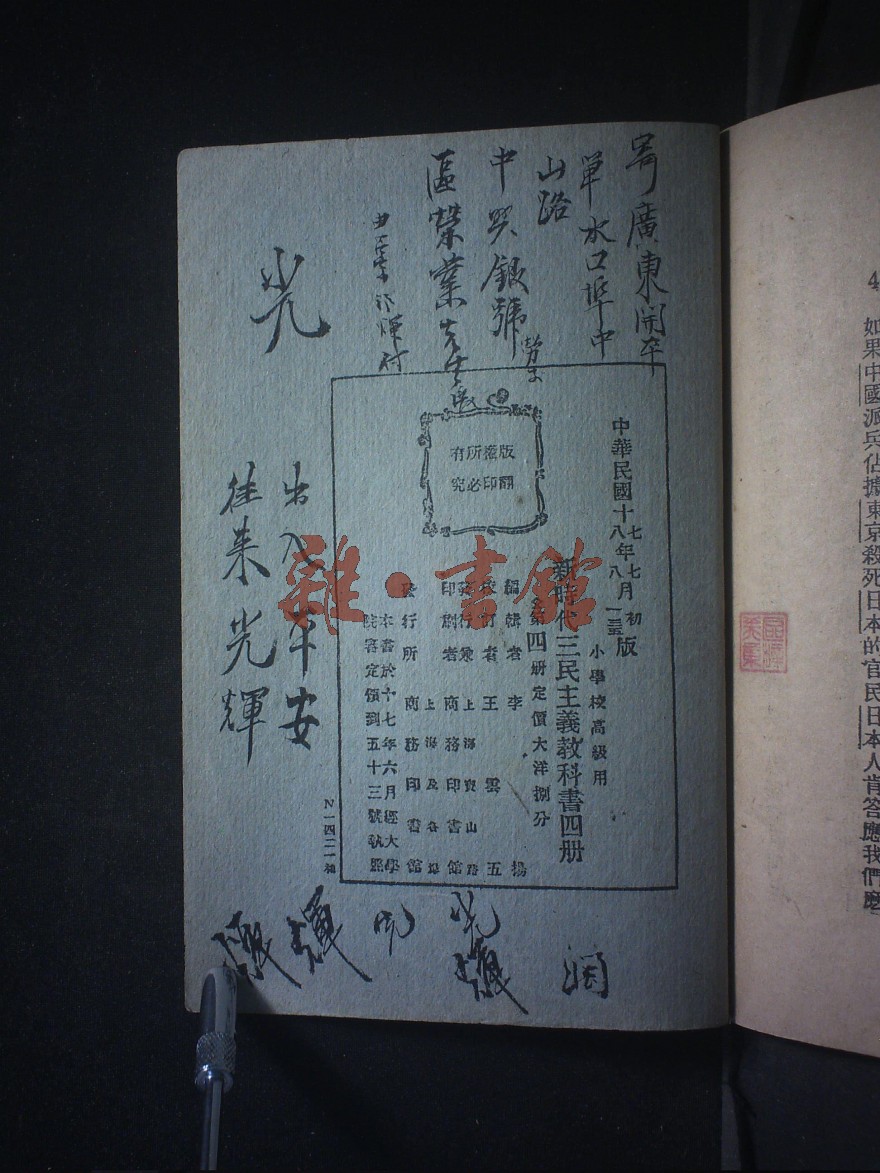 寄廣東開平
單水口埠中
山路
中興銀號
區榮業先生收
光
出入平安
往來光輝
版權所有
翻印必究
中華民國十七年七月初版
八年八
新時代三民主義教科書四册
小學校高級用
第四册定價大洋捌分
編輯者 李揚
校訂者 王雲五
發行兼 上海寶山路
印刷者 商務印書館
發行所 上海及各埠
商務印書館
本書於十七年六月經大學
院審定領到五十三號執照
N一四二一
雜·書館
輝
光
潤
4
如果中國派兵佔據東京殺死日本的官民日本人肯答應我們麽